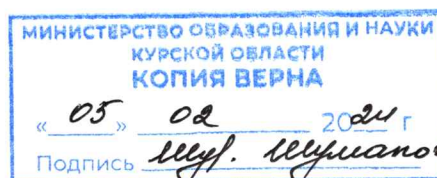 МИНИСТЕРСТВО ОБРАЗОВАНИЯ И НАУКИ
КУРСКОЙ ОБЛАСТИ
КОПИЯ ВЕРНА
«05» 02 2024 г
Подпись